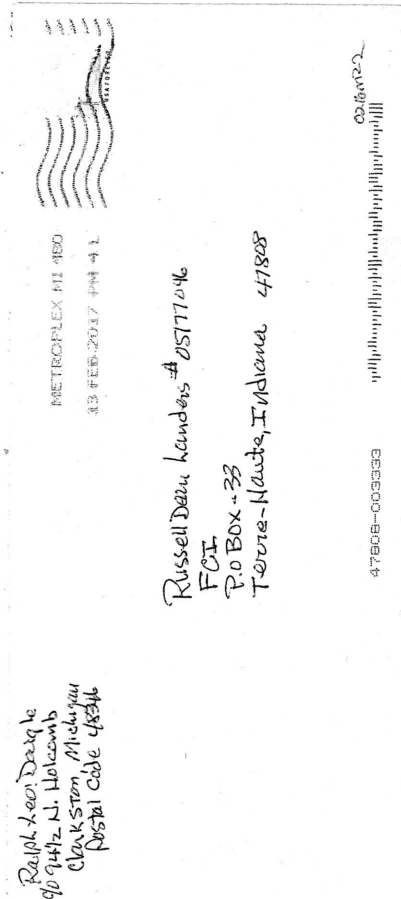 Ralph Leo: Daigle
c/o 9442 N. Holcomb
Clarkston, Michigan
Postal Code 48346
METROPLEX MI 480
13 FEB 2017 PM 4 L
USA FOREVER
Russell Dean Landers # 05177046
FCI
P.O BOX - 33
Terre-Haute, Indiana 47808
47808-003333